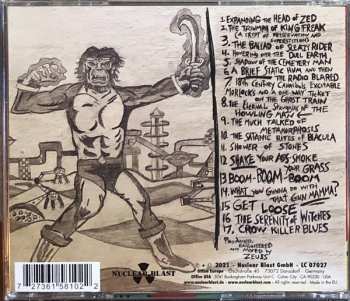 1. EXPANDING THE HEAD OF ZED
2. THE TRIUMPH OF KING FREAK
(A CRYPT OF PRESERVATION AND
SUPERSTITION)
3. THE BALLAD OF SLEAZY RIDER
4. HOVERING OVER THE DULL EARTH
5. SHADOW OF THE CEMETERY MAN
6. A BRIEF STATIC HUM AND THEN
THE RADIO BLARED
7. 18TH CENTURY CANNIBALS, EXCITABLE
MORLOCKS AND A ONE-WAY TICKET
ON THE GHOST TRAIN
8. THE ETERNAL STRUGGLES OF THE
HOWLING MAN
9. THE MUCH TALKED OF
METAMORPHOSIS
10. THE SATANIC RITES OF BLACULA
11. SHOWER OF STONES
12. SHAKE YOUR ASS-SMOKE
YOUR GRASS
13. BOOM-BOOM-BOOM
14. WHAT YOU GONNA DO WITH
THAT GUN MAMMA?
15. GET LOOSE
16. THE SERENITY OF WITCHES
17. CROW KILLER BLUES
PRODUCED, ENGINEERED
AND MIXED BY
ZEUSS
7 27361 58102 2
NUCLEAR BLAST
2021 - Nuclear Blast GmbH - LC 07027
Office Europe
Office USA
Germany
www.nuclearblast.de
Made in the EU